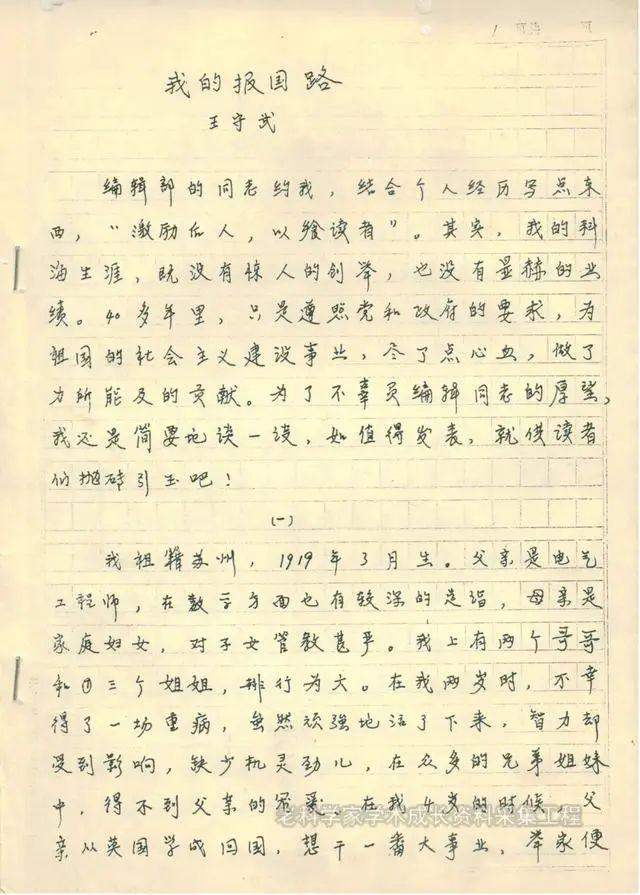 我的报国路
王守武
编辑部的同志约我，结合个人经历写点东
西，“激励后人，以飨读者”。其实，我的科
海生涯，既没有惊人的创举，也没有显赫的业
绩。40多年里，只是遵照党和政府的要求，为
祖国的社会主义建设事业，尽了点心血，做了
力所能及的贡献。为了不辜负编辑同志的厚望，
我还是简要地谈一谈，如值得发表，就供读者
们抛砖引玉吧！
（一）
我祖籍苏州，1919年3月生。父亲是电气
工程师，在数学方面也有较深的造诣，母亲是
家庭妇女，对子女管教甚严。我上有两个哥哥
和三个姐姐，排行为六。在我两岁时，不幸
得了一场重病，虽然顽强地活了下来，智力却
受到影响，缺少机灵劲儿，在众多的兄弟姐妹
中，得不到父亲的宠爱。在我4岁的时候，父
亲从英国学成回国，想干一番大事业，举家便
老科学家学术成长资料采集工程